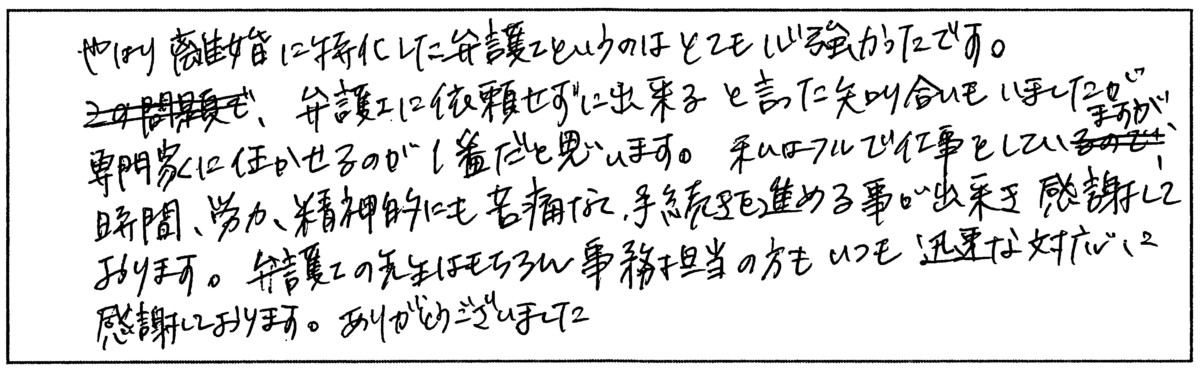 やはり離婚に特化した弁護士というのはとても心強かったです。
この問題で、弁護士に依頼せずに出来ると言った知り合いもいましたが
専門家に任かせるのが1番だと思います。私はフルで仕事をしているので、ますが、
時間、労力、精神的にも苦痛なく、手続きを進める事が出来き感謝して
おります。弁護士の先生はもちろん事務担当の方もいつも迅速な対応に
感謝しております。ありがとうございました